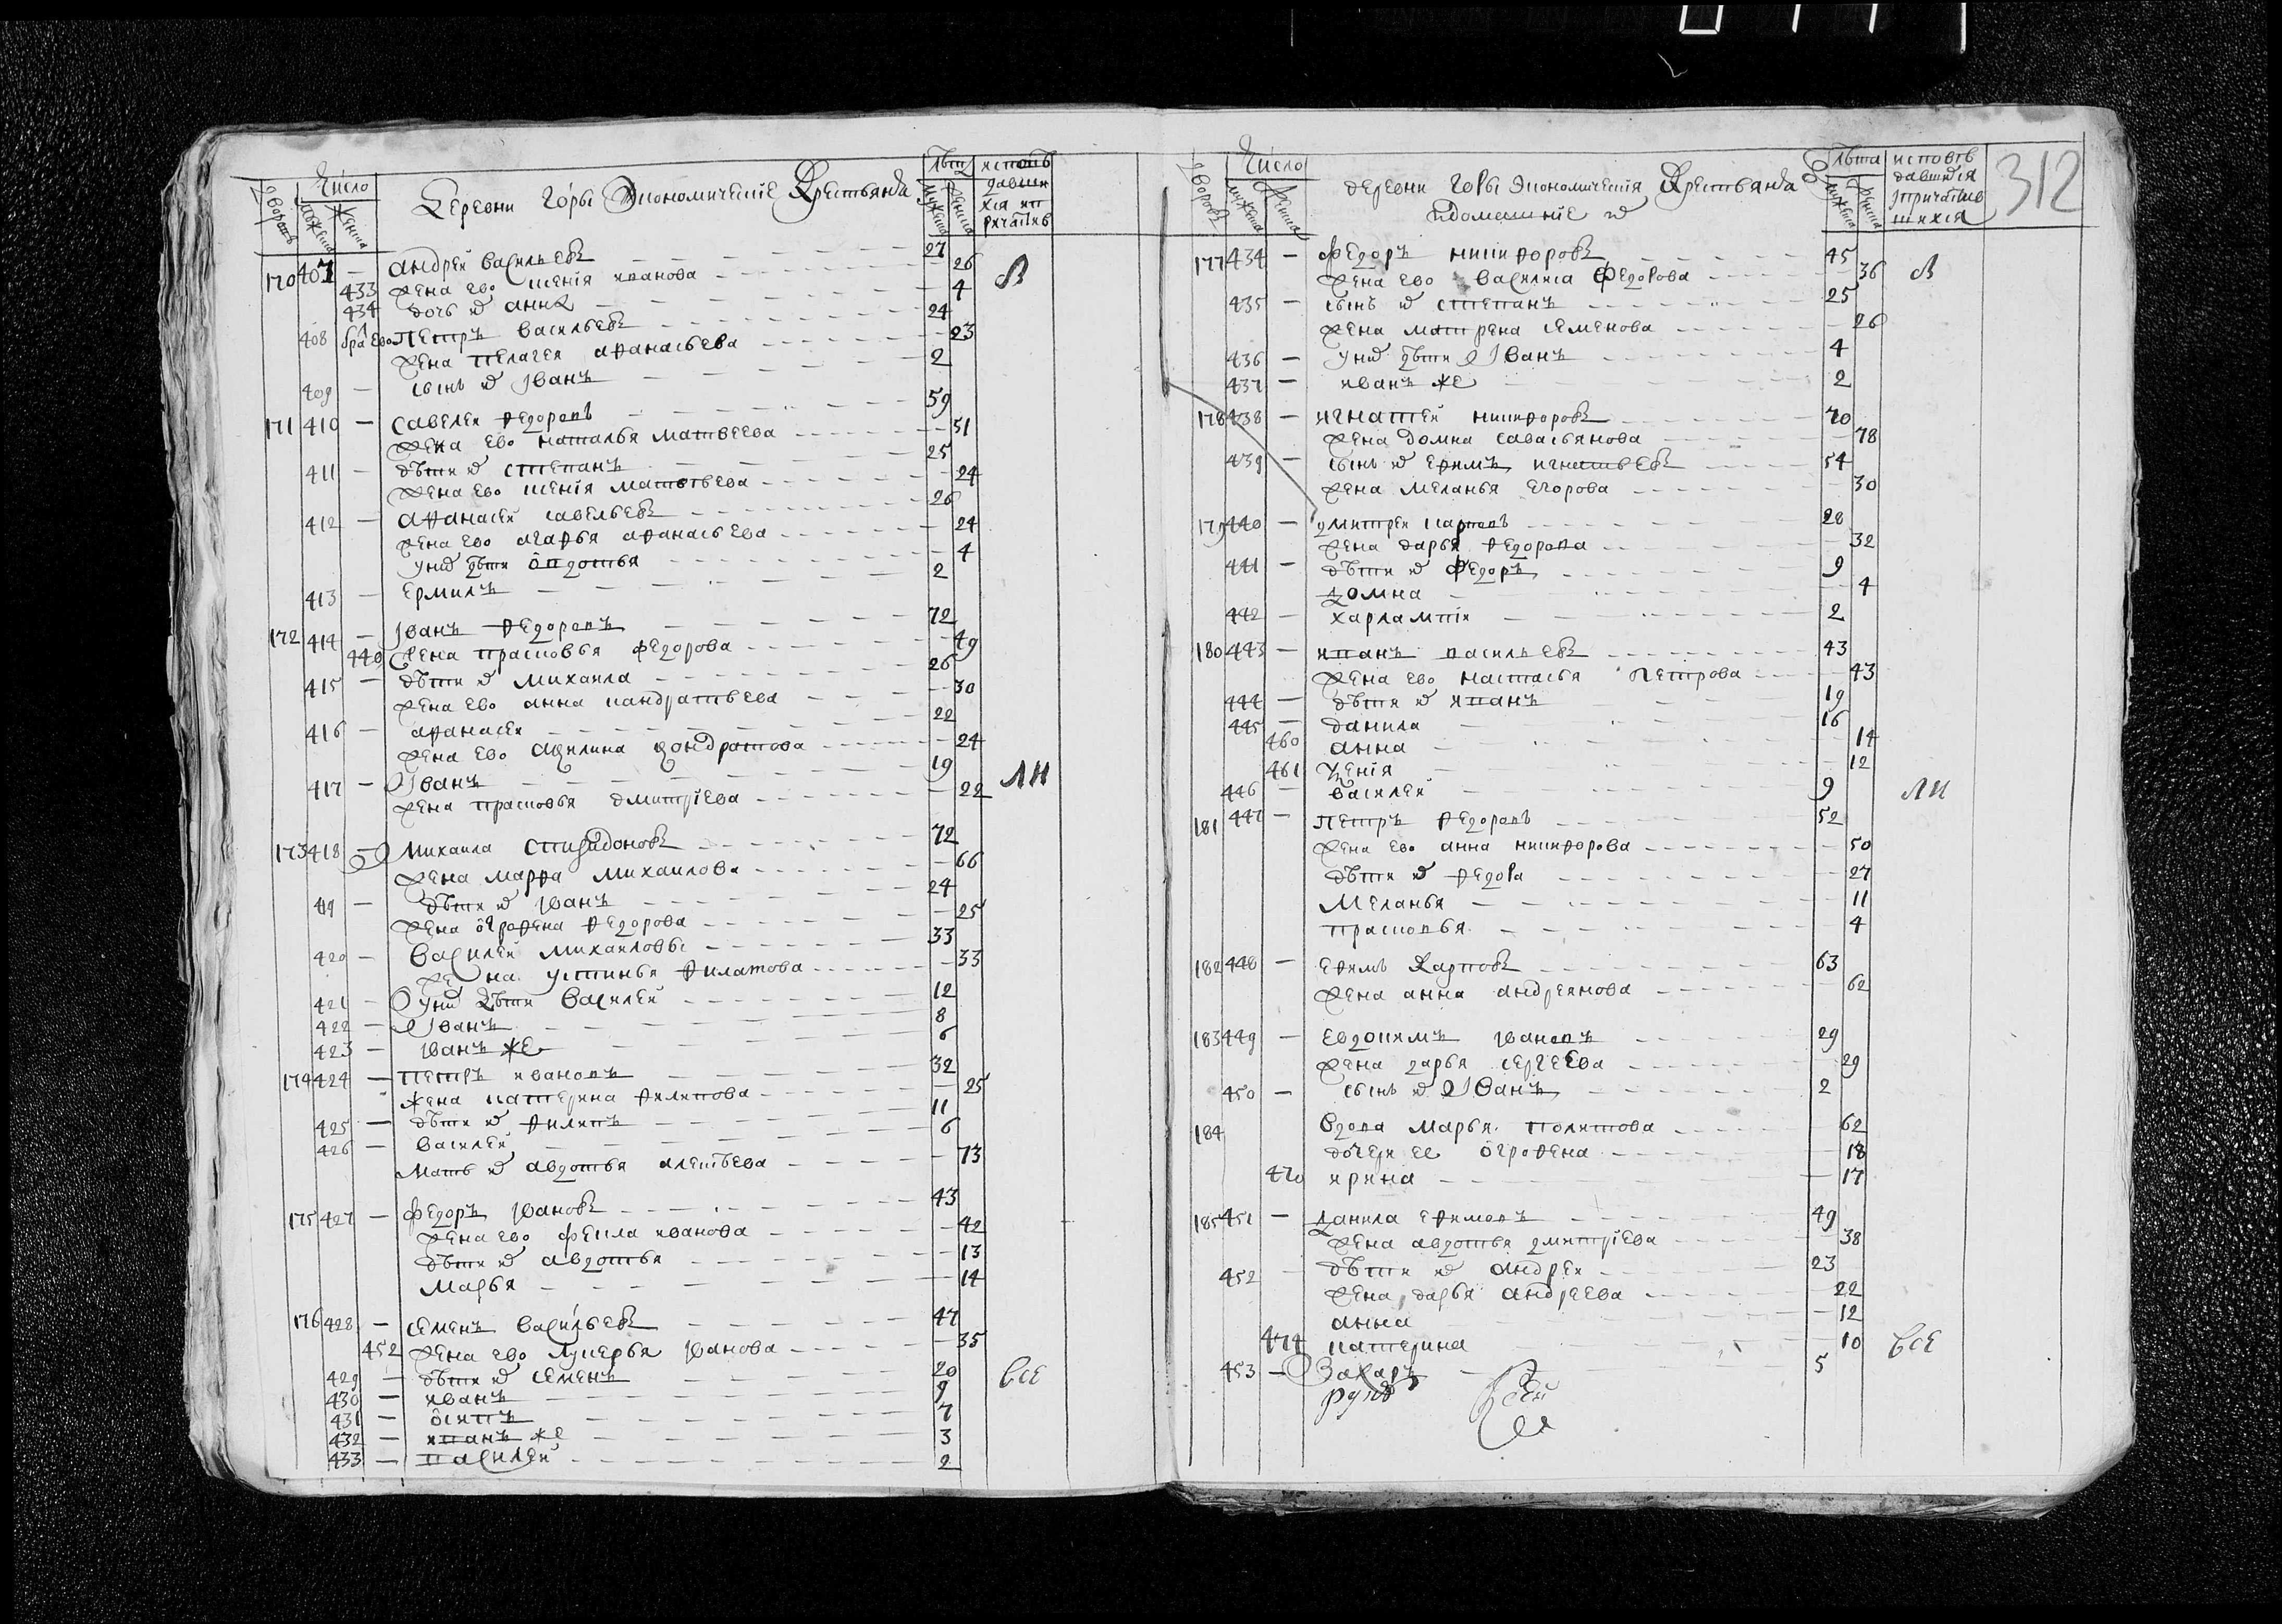 Число
дворовъ мужеска женска
Деревни Горы Экономическiе Крестьяня
лѣта
мужеска женска
исповѣ
давши
хся ип
ричастив
170 407 — андрей василъевъ 27
433 жена ево ксенiя иванова 26
434 дочь их анна 4
408 бра ево петръ васильевъ 24
жена пелагея афанасьева 23
409 — сынъ их Iванъ 2
171 410 — савелеи федоровъ 59
жена ево наталья матвеева 51
411 — дѣти их степанъ 25
жена ево ксенiя матвѣева 24
412 — афанасеи савельевъ 26
жена ево агафья афанасьева 24
у них дѣти овдотья 4
413 — ермилъ 2
172 414 — Iванъ федоровъ 72
440 жена прасковья федорова 49
415 — дѣти их михаила 26
жена ево анна кандратьева 30
416 — афанасеи 22
жена ево акилина кондратова 24
417 — Iванъ 19
жена прасковья дмитрiева 22
173 418 — михаила спиридоновъ 72
жена марфа михаилова 66
419 — дѣти их Iванъ 24
жена ографена федорова 25
420 — василеи михаиловъ 33
жена устинья филатова 33
421 — у них дѣти василеи 12
422 — Iванъ 8
423 — Iванъ же 6
174 424 — петръ ивановъ 32
жена катерина филипова 25
425 — дѣти их филипъ 11
426 — василеи 6
мать их авдотья алексѣева 73
175 427 — федоръ Iвановъ 43
жена ево фекла иванова 42
дѣти их авдотья 13
марья 14
176 428 — семенъ васильевъ 47
452 жена ево лукерья Iванова 35
429 — дѣти их семенъ 20
430 — иванъ 9
431 — осипъ 7
432 — иванъ же 3
433 — василеи 2
В
ЛИ
все
Число
дворовъ мужеска женска
деревни горы экономическiя Крестьяня
идомашнiе их
лѣта
мужеска женска
исповѣ
давшiся
ипричастив
шихся
312
177 434 — федоръ никифоровъ 45
жена ево василиса федорова 36
435 — сынъ их степанъ 25
жена матрена семенова 26
436 — у них дѣти Iванъ 4
437 — иванъ же 2
178 438 — игнатеи никифоровъ 70
жена домна савасьянова 78
439 — сынъ их ефимъ игнатьевъ 54
жена меланья егорова 30
179 440 — дмитреи карповъ 28
жена дарья федорова 32
441 — дѣти их федоръ 9
домна 4
442 — харлампiи 2
180 443 — иванъ василъевъ 43
жена ево настасья петрова 43
444 — дѣти их иванъ 19
445 — данила 16
460 анна 14
461 ксенiя 12
446 — василеи 9
181 447 — петръ федоровъ 52
жена ево анна никифорова 50
дѣти их федора 27
меланья 11
прасковья 4
182 448 — ефимъ карповъ 63
жена анна андреянова 62
183 449 — евдокимъ Iвановъ 29
жена дарья сергеева 29
450 — сынъ их Iванъ 2
184 вдова марья политова 62
дочери ее ографена 18
470 ирина 17
185 451 — данила ефимовъ 49
жена авдотья дмитрiева 38
452 — дѣти их андреи 23
жена дарья андреева 22
анна 12
474 катерина 10
453 — Захаръ 5
В
ЛИ
все